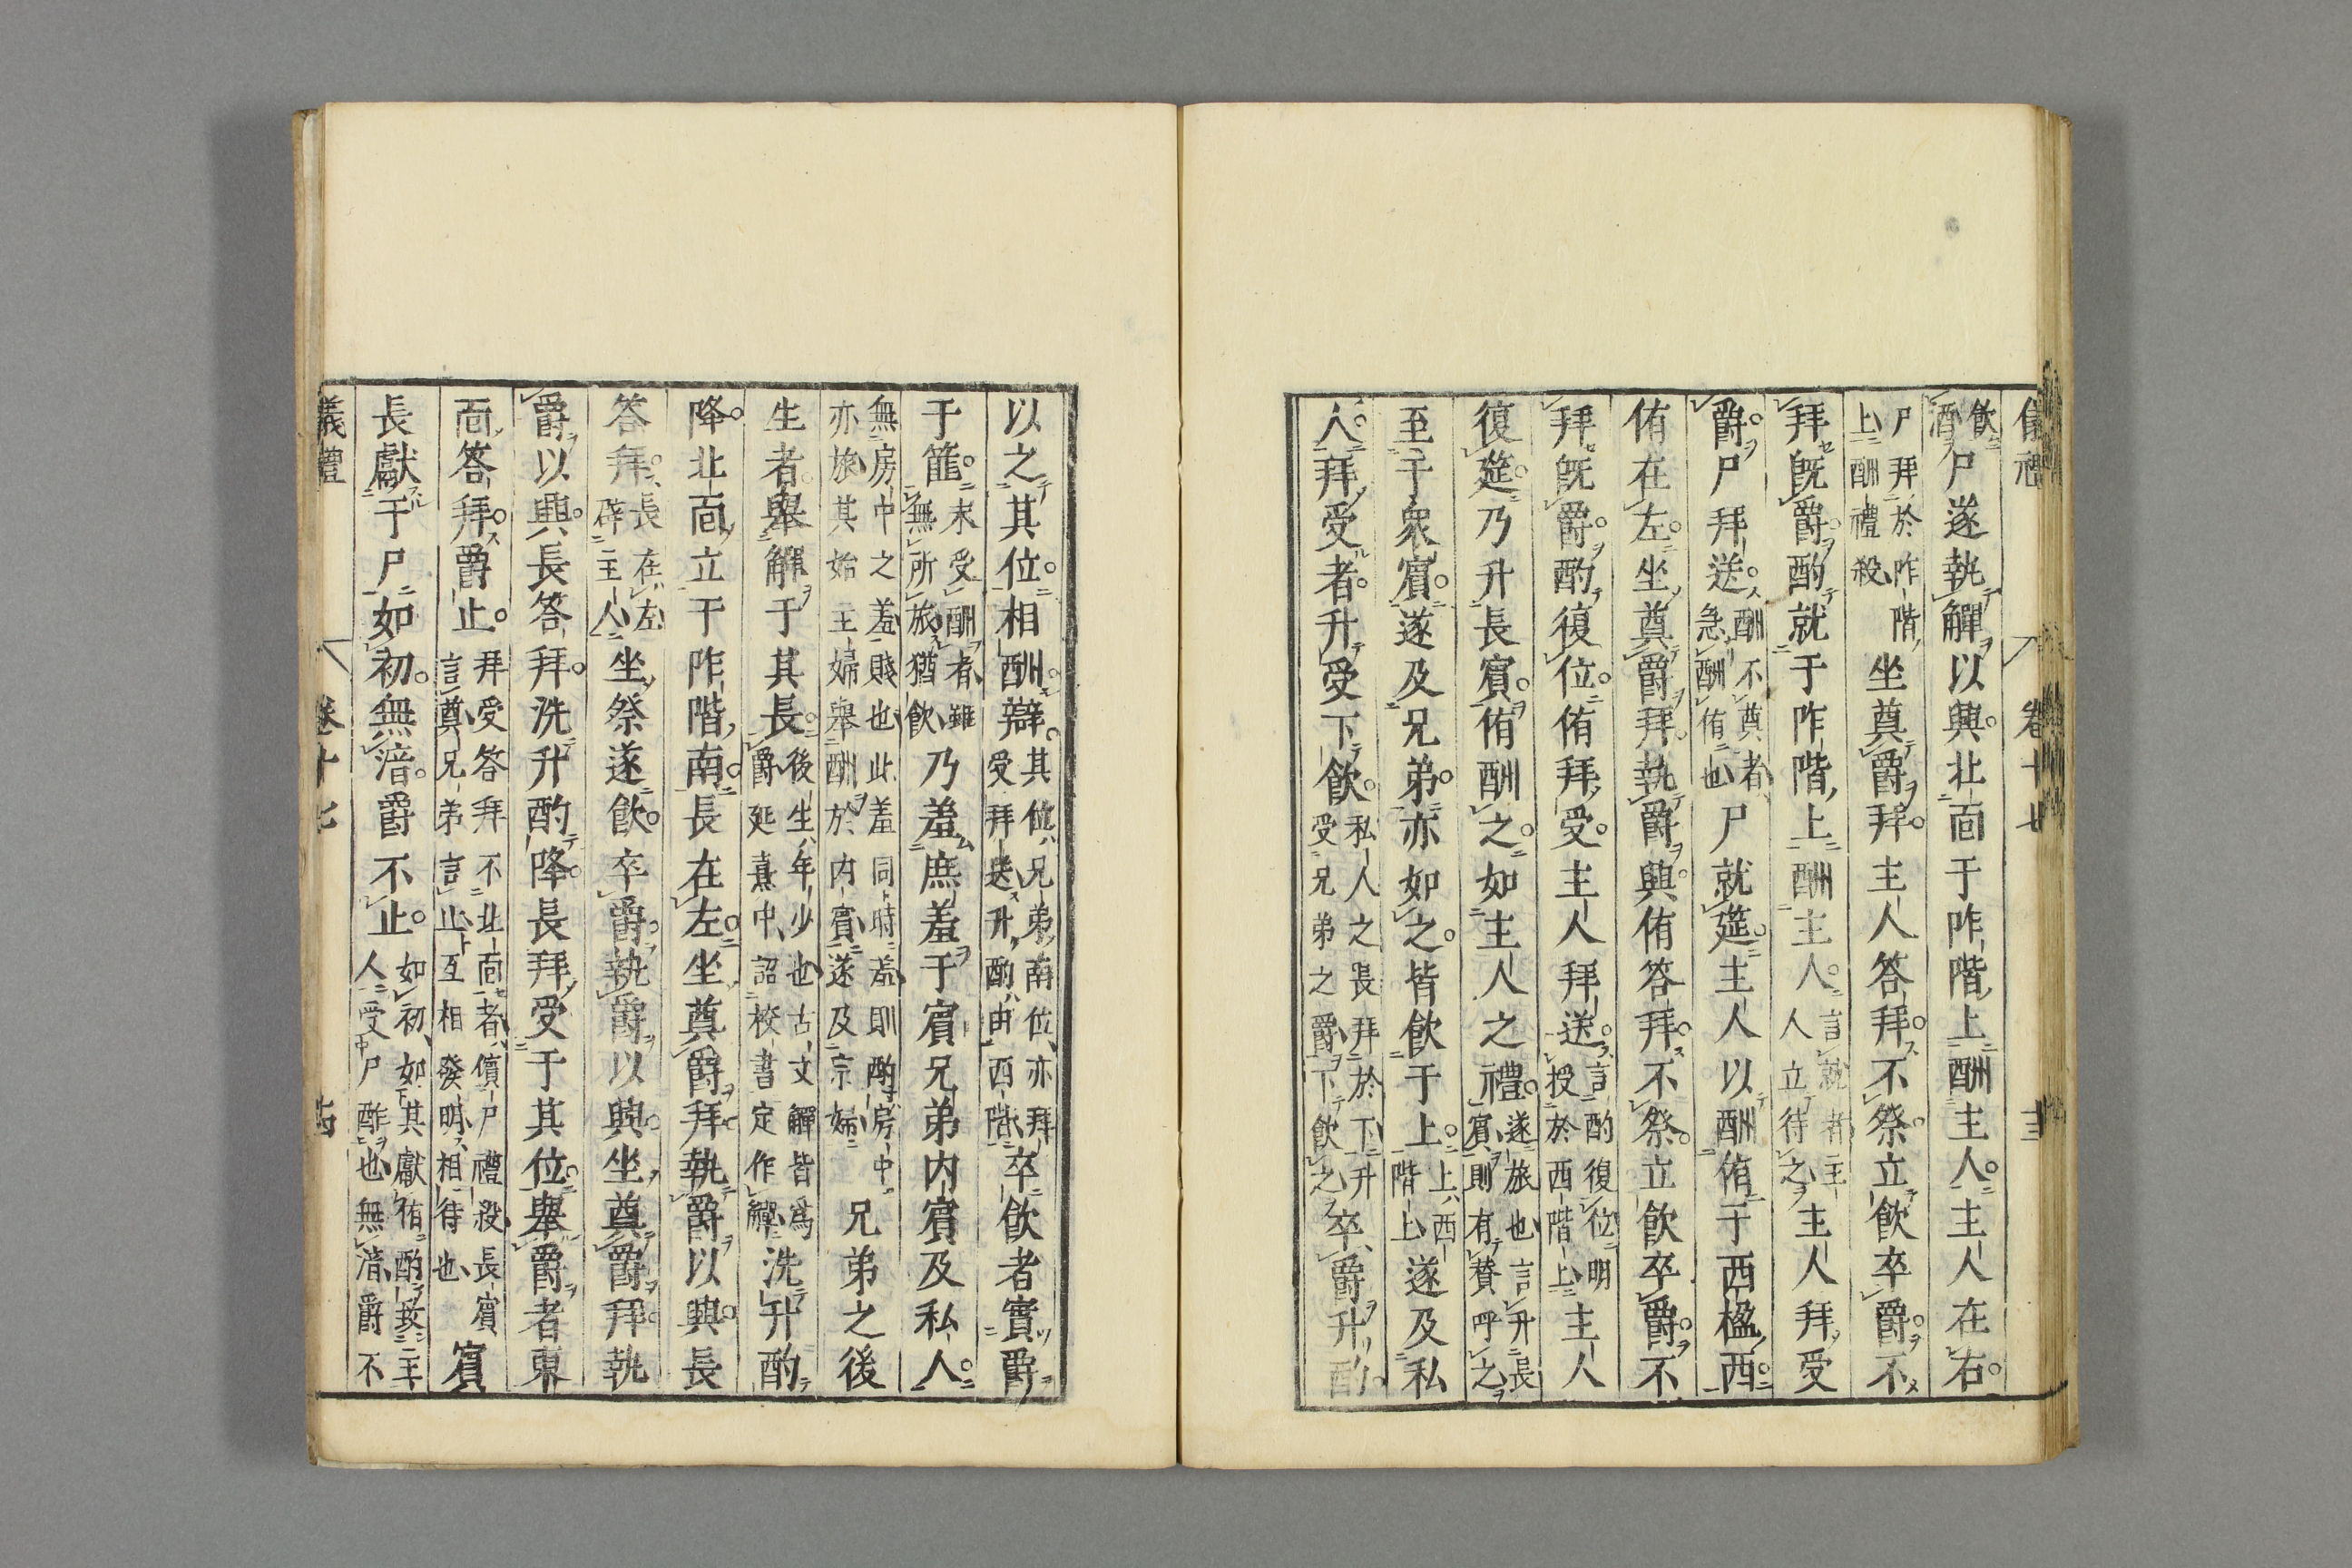 儀禮 卷十七 十三
飲酒尸遂執觶以興北面于阼階上酬主人主人在右
尸拜於阼階上酬禮殺坐奠爵拜主人答拜不祭立飲卒爵不
拜既爵酌就于阼階上酬主人言就者主人立待之主人拜受
爵尸拜送酬不奠者急酬侑也尸就筵主人以酬侑于西楹西
侑在左坐奠爵拜執爵興侑答拜不祭立飲卒爵不
拜既爵酌復位侑拜受主人拜送言酌復位明授於西階上主人
復筵乃升長賓侑酬之如主人之禮遂旅也言升長賓則有贊呼之
至于衆賓遂及兄弟亦如之皆飲于上上西階上遂及私
人拜受者升受下飲私人之長拜於下升受兄弟之爵下飲之卒爵升酌
以之其位相酬辯其位兄弟南位亦拜受拜送升酌由西階卒飲者實爵
于篚末受酬者雖無所旅猶飲乃羞庶羞于賓兄弟内賓及私人
無房中之羞賤也此羞同時羞則酌房中亦旅其始主婦舉酬於内賓遂及宗婦兄弟之後
生者舉觶于其長後生年少也古文觶皆爲爵延熹中詔校書定作觶洗升酌
降北面立于阼階南長在左坐奠爵拜執爵以興長
答拜長在左辟主人坐祭遂飲卒爵執爵以興坐奠爵拜執
爵以興長答拜洗升酌降長拜受于其位舉爵者東
面答拜爵止拜受答拜不北面者儐尸禮殺長賓言奠兄弟言止互相發明相待也賓
長獻于尸如初無湆爵不止如初如其獻侑酌致主人受尸酢也無湆爵不
儀禮 卷十七 十四